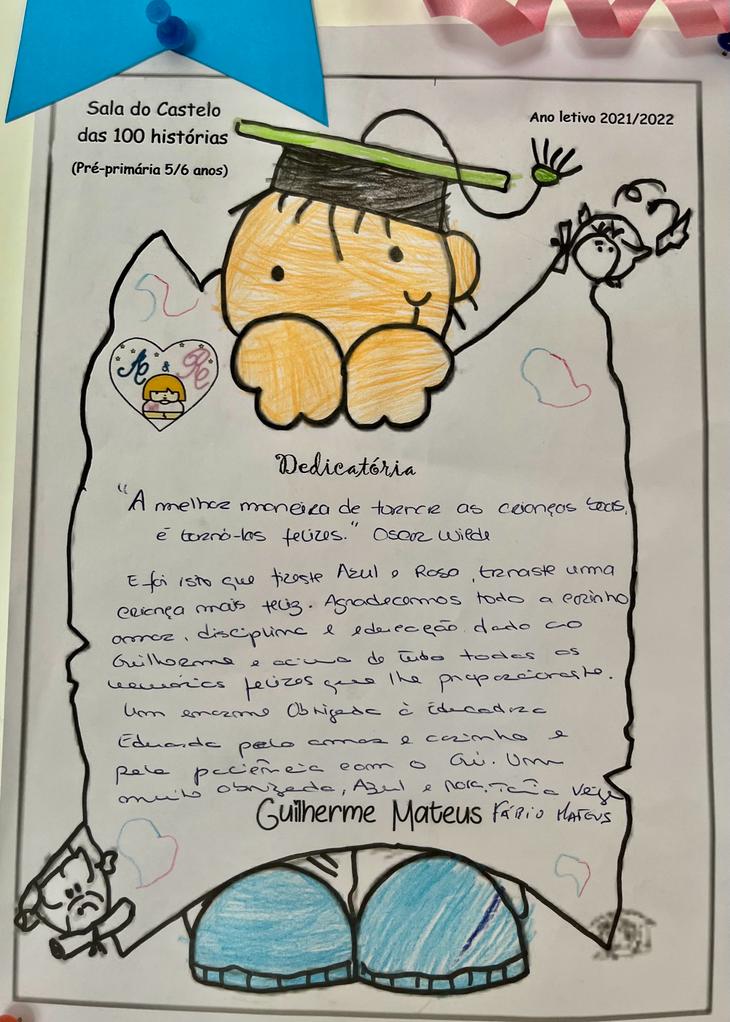 Sala do Castelo
das 100 histórias
(Pré-primária 5/6 anos)
Ano letivo 2021/2022
A & R
Dedicatória
"A melhor maneira de tornar as crianças boas,
é torná-las felizes." Oscar Wilde
E foi isto que fizeste Azul e Rosa, tornaste uma
criança mais feliz. Agradecemos todo o carinho
amor, disciplina e educação dado ao
Guilherme e acima de tudo todas as
memórias felizes que lhe proporcionaste.
Um enorme Obrigada à Educadora
Eduarda pelo amor e carinho e
pela paciência com o Gui. Um
muito obrigada, Azul e Rosa,
Guilherme Mateus Fábio Mateus